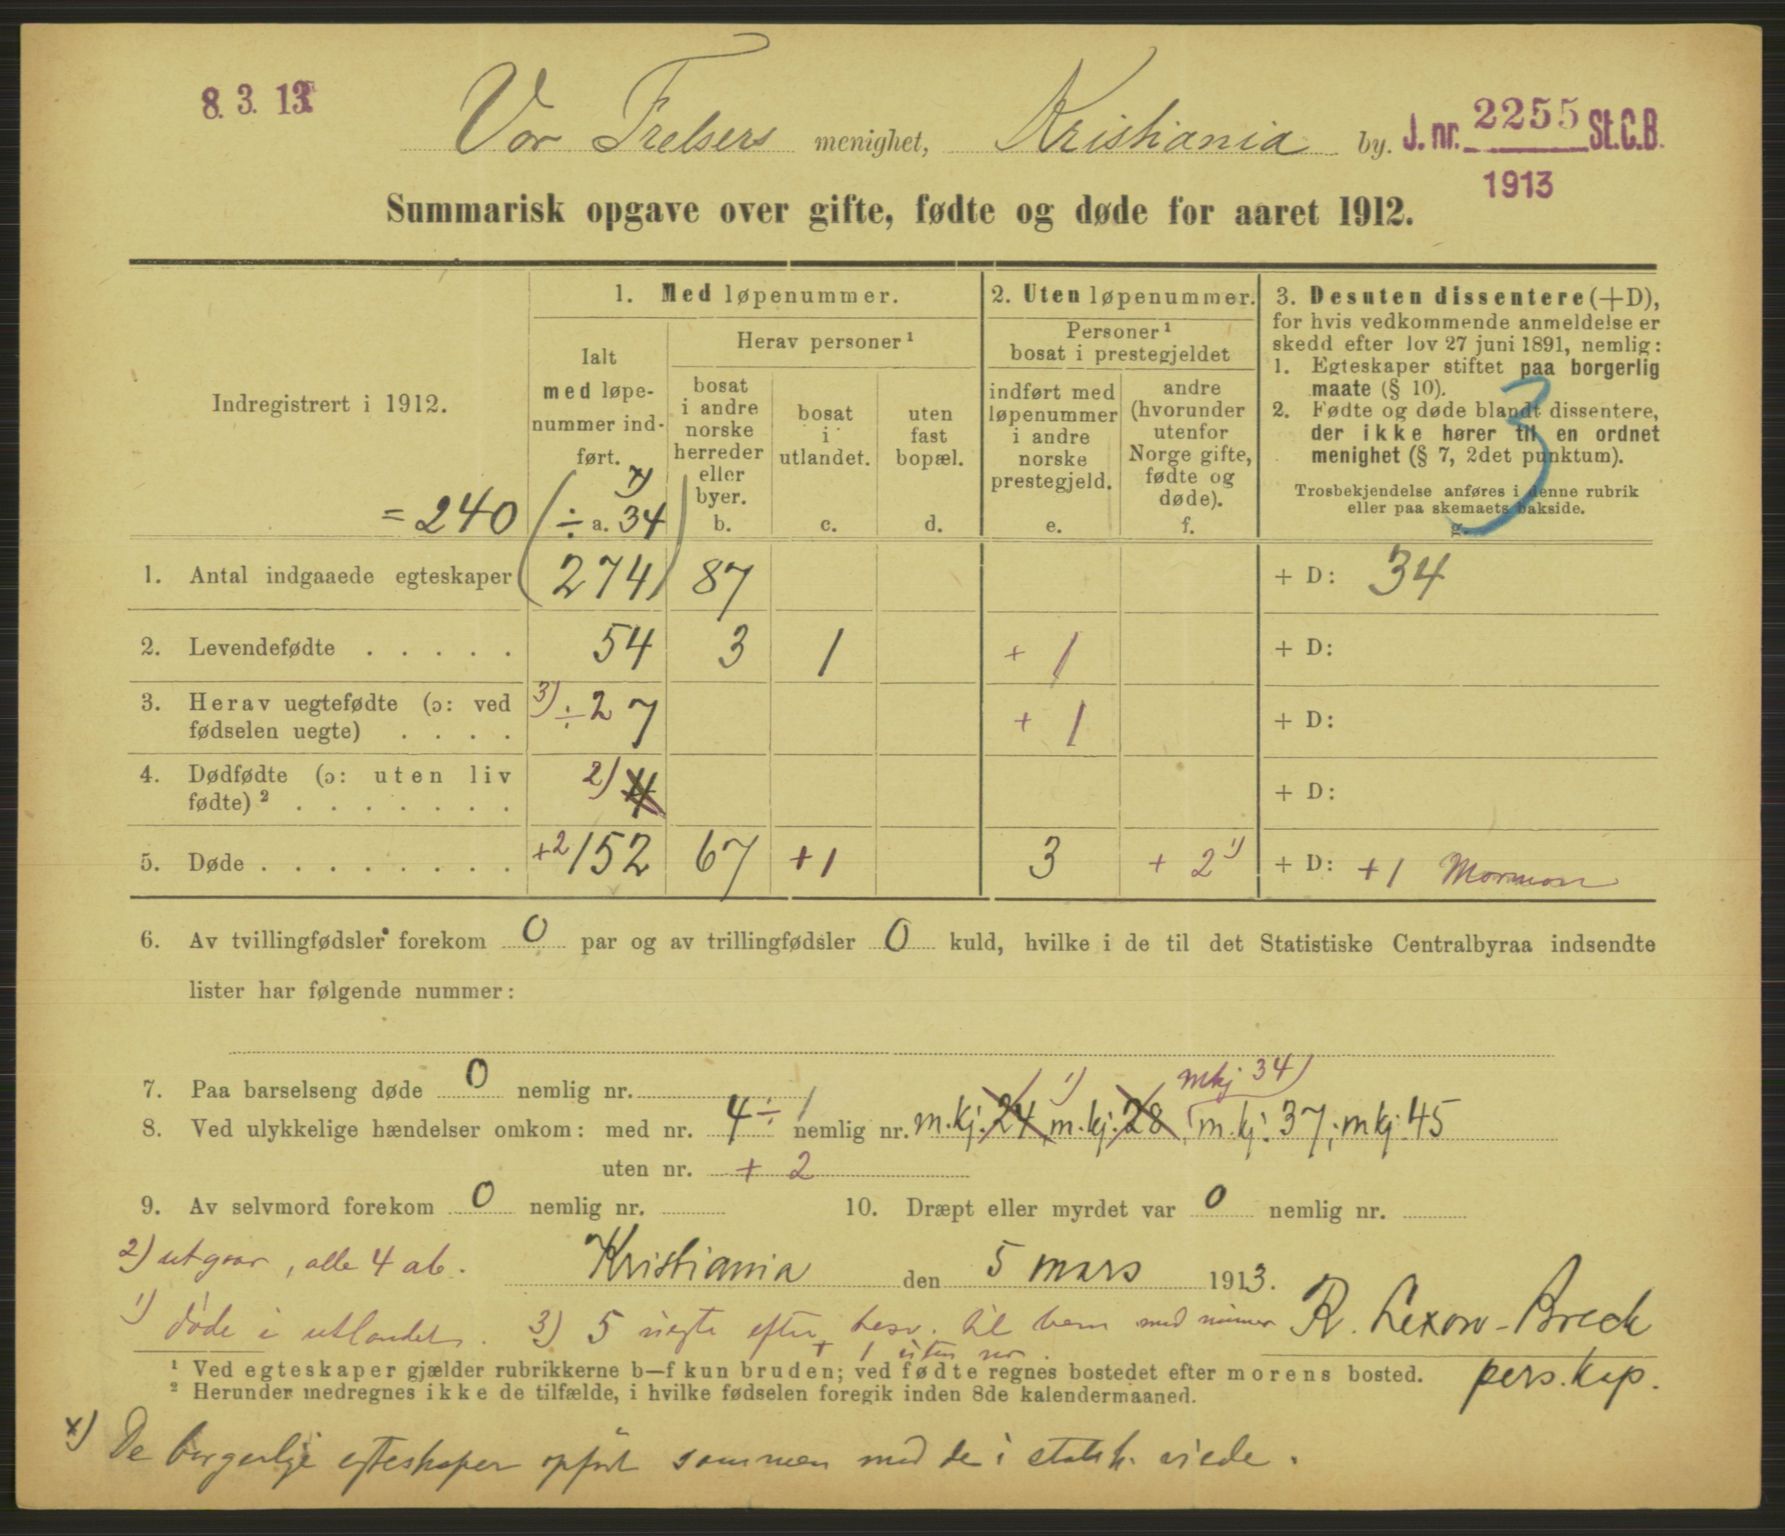 8. 3. 13
Vor Frelsers menighet, Kristiania by. J. nr. 2255 St.C.B.
1913
Summarisk opgave over gifte, fødte og døde for aaret 1912.
Indregistrert i 1912.
= 240
1. Med løpenummer.
Ialt
med løpe-
nummer ind-
ført.
x)
÷ a. 34
Herav personer ¹
bosat
i andre
norske
herreder
eller
byer.
b.
bosat
i
utlandet.
c.
uten
fast
bopæl.
d.
2. Uten løpenummer.
Personer ¹
bosat i prestegjeldet
indført med
løpenummer
i andre
norske
prestegjeld.
e.
andre
(hvorunder
utenfor
Norge gifte,
fødte og
døde).
f.
3. Desuten dissentere (+D),
for hvis vedkommende anmeldelse er
skedd efter lov 27 juni 1891, nemlig:
1. Egteskaper stiftet paa borgerlig
maate (§ 10).
2. Fødte og døde blandt dissentere,
der ikke hører til en ordnet
menighet (§ 7, 2det punktum).
Trosbekjendelse anføres i denne rubrik
eller paa skemaets bakside.
g.
3
1. Antal indgaaede egteskaper (274) 87 + D: 34
2. Levendefødte . . . . . 54 3 1 + 1 + D:
3. Herav uegtefødte (ɔ: ved
fødselen uegte) . . . . 3) ÷ 2 7 + 1 + D:
4. Dødfødte (ɔ: uten liv
fødte) ² . . . . . . . 2) 4 + D:
5. Døde . . . . . . . . +2 152 67 +1 3 + 2 1) + D: +1 Mormon
6. Av tvillingfødsler forekom 0 par og av trillingfødsler 0 kuld, hvilke i de til det Statistiske Centralbyraa indsendte
lister har følgende nummer:
7. Paa barselseng døde 0 nemlig nr.
mkj 34)
8. Ved ulykkelige hændelser omkom: med nr. 4 ÷ 1 nemlig nr. m.kj. 24, 1) m.kj. 28, m.kj. 37; mkj. 45
uten nr. + 2
9. Av selvmord forekom 0 nemlig nr. 10. Dræpt eller myrdet var 0 nemlig nr.
2) utgaar, alle 4 ab.
Kristiania den 5 mars 1913.
1) døde i utlandet. 3) 5 uegte efter besv. til brev med numer
+ 1 uten nr.
R. Lexow-Breck
pers. kap.
¹ Ved egteskaper gjælder rubrikkerne b—f kun bruden; ved fødte regnes bostedet efter morens bosted.
² Herunder medregnes ikke de tilfælde, i hvilke fødselen foregik inden 8de kalendermaaned.
x) De borgerlige egteskaper opført sammen med de i statsk. viede.